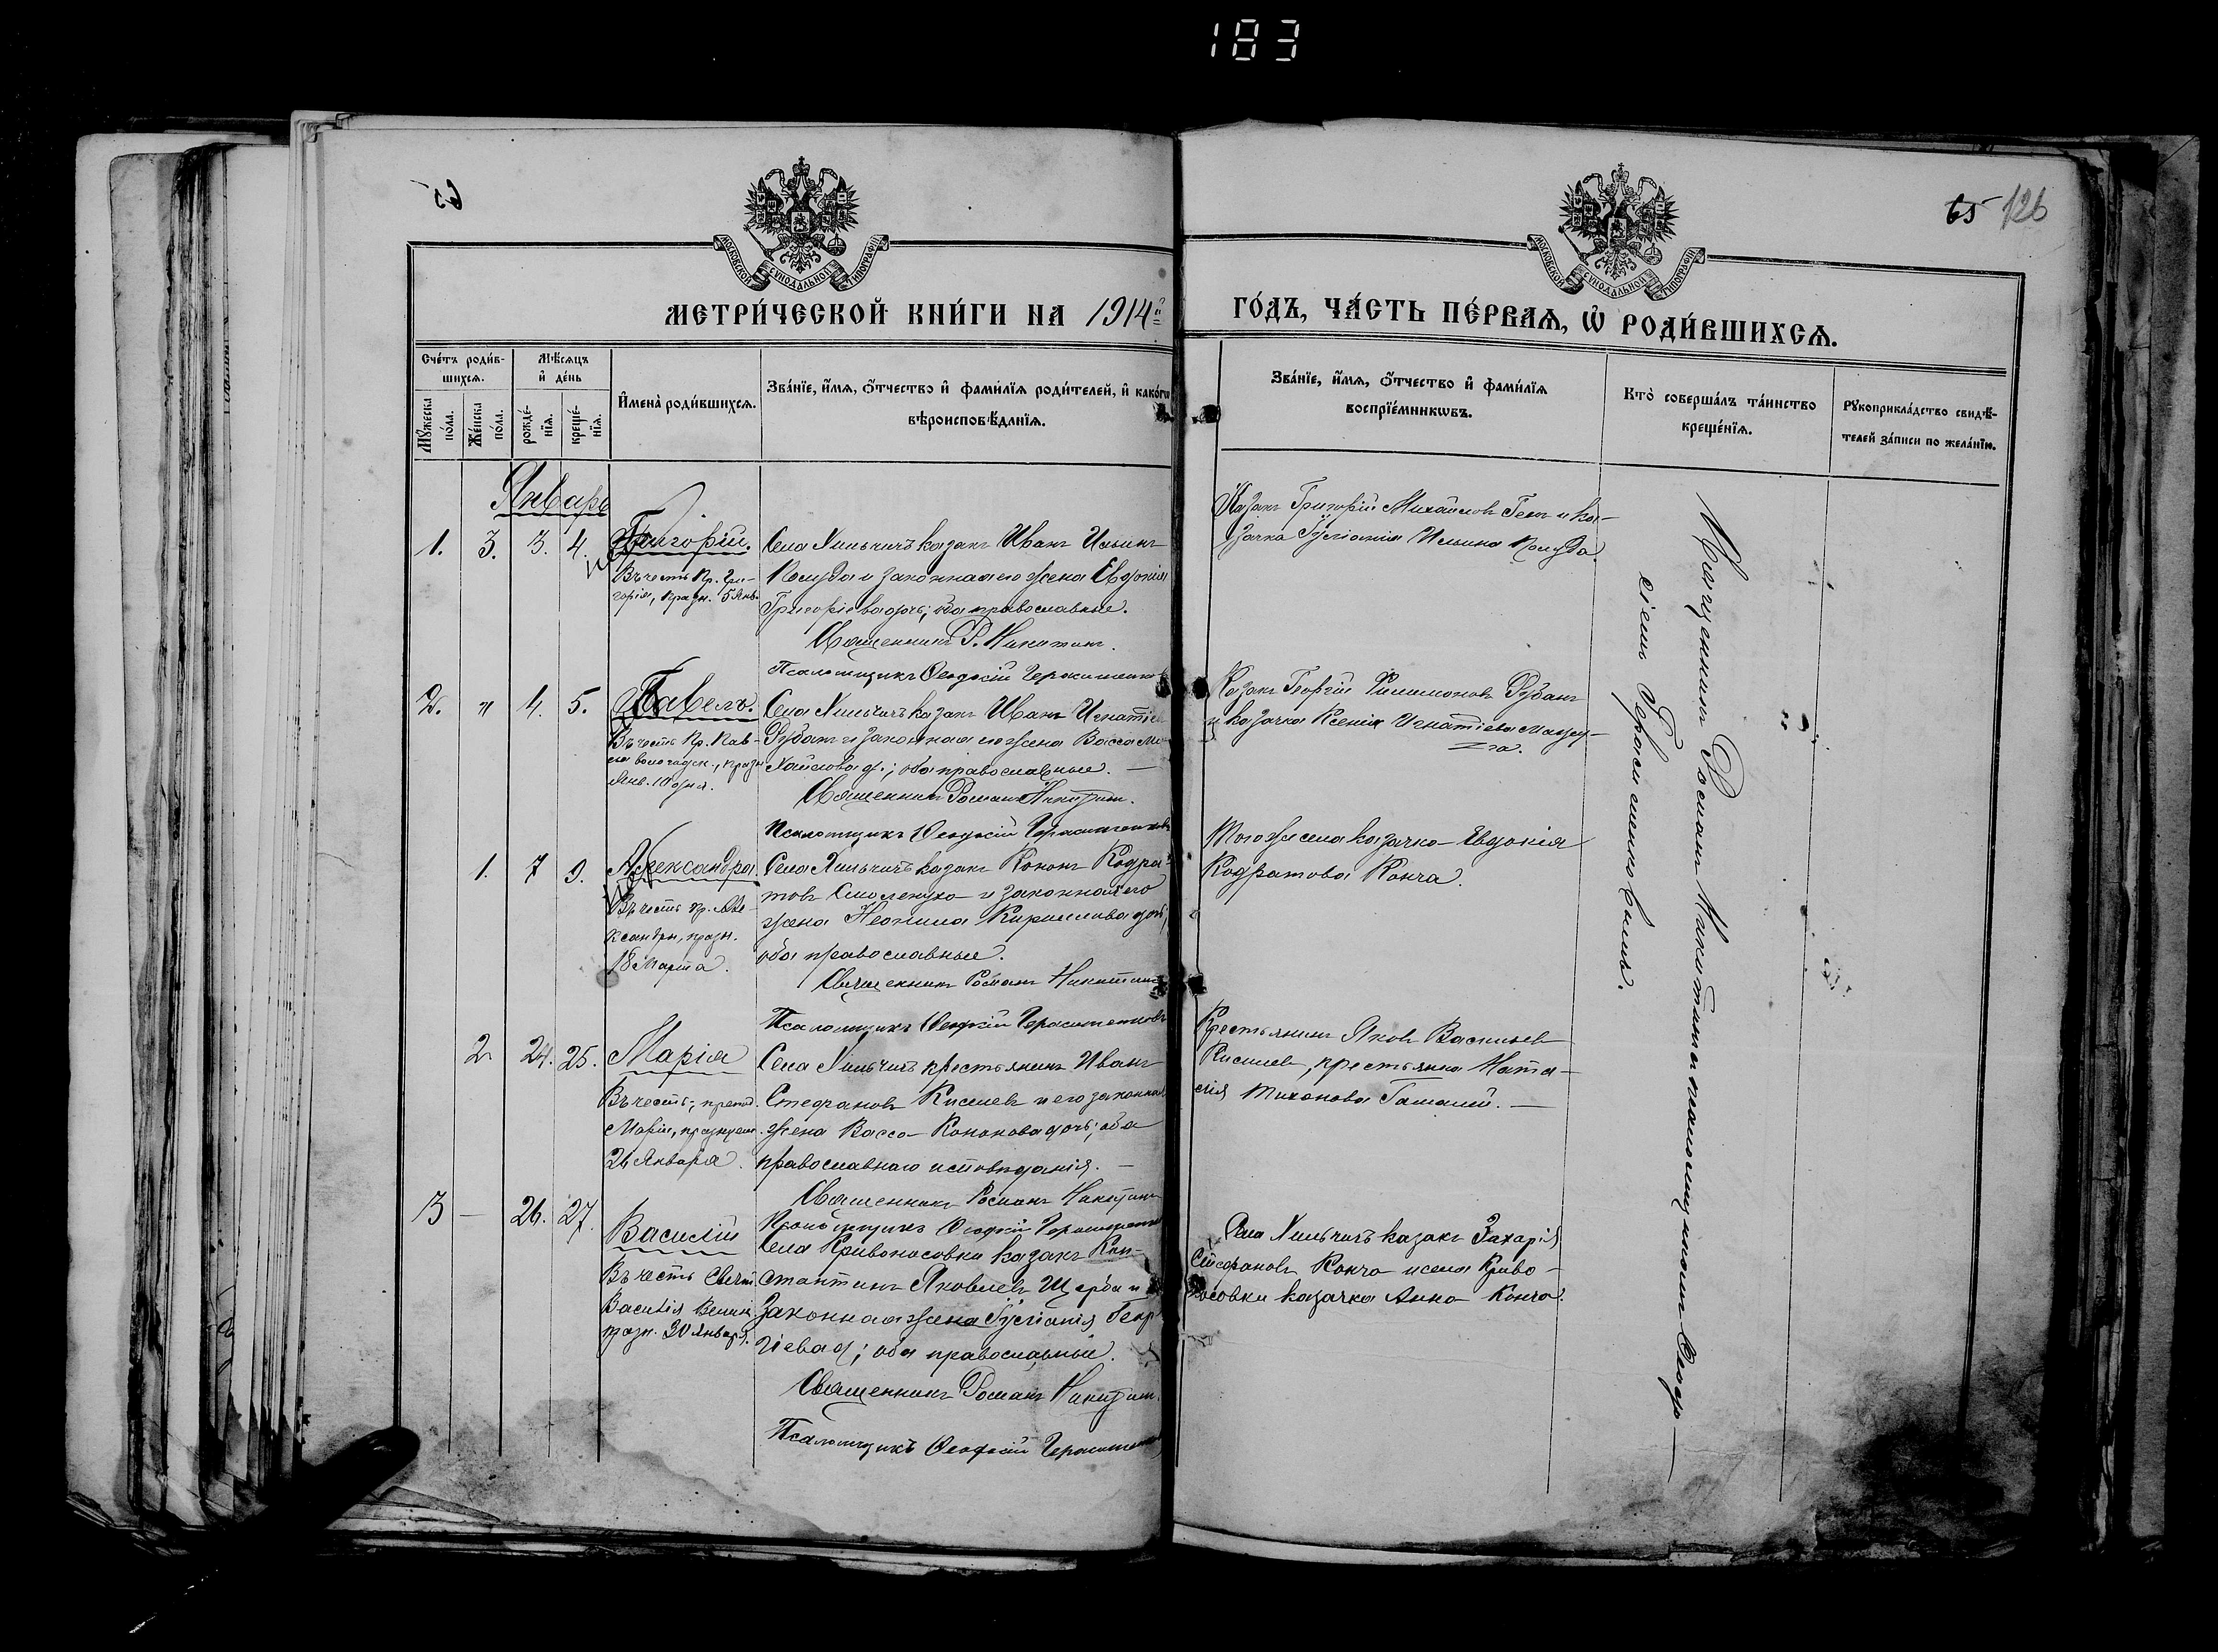 183
65 126
МОСКОВСКОЙ СѴНОДАЛЬНОЙ ТИПОГРАФІИ
МОСКОВСКОЙ СѴНОДАЛЬНОЙ ТИПОГРАФІИ
МЕТРИ́ЧЕСКОЙ КНИ́ГИ НА 1914й
ГО́ДЪ, ЧА́СТЬ ПЕ́РВАѦ, Ѡ҆ РОДИ́ВШИХСѦ.
Сче́тъ роди́в-
шихсѧ.
Мѣ́сѧцъ
и҆ де́нь
Мꙋ́жеска
по́ла.
Же́нска
по́ла.
рожде́-
нїѧ.
креще́-
нїѧ.
И҆мена̀ роди́вшихсѧ.
Зва́нїе, и҆́мѧ, ѻ҆́тчество и҆ фами́лїѧ роди́телей, и҆ како́гѡ
вѣроисповѣ́данїѧ.
Зва́нїе, и҆́мѧ, ѻ҆́тчество и҆ фами́лїѧ
воспрїе́мникѡвъ.
Кто̀ соверша́лъ та́инство
креще́нїѧ.
Рꙋкоприкла́дство свидѣ́-
телей за́писи по жела́нїю.
Январь
1. 3. 3. 4. Григорій.
Въ честь Пр. Гри-
горія, празн. 5 Янв.
Села казакъ Иванъ Ильинъ
и законная его жена Евдокія
Григоріева дочь; оба православные.
Священникъ Р. Никитинъ.
Псаломщикъ Ѳеодосій Герасименко
Казакъ Григорій Михайловъ Гекъ и ка-
зачка Ильина
2. " 4. 5. Павелъ.
Въ честь Пр. Пав-
ла вологодск., празн
Янв. 10 дня.
Села казакъ Иванъ Игнатіев
Рубанъ и законная его жена Васса Ми-
хайлова д.; оба православные. —
Священникъ Романъ Никитин.
Псаломщикъ Ѳеодосій Герасименковъ
Казакъ Георгій Филимоновъ Рубанъ
и казачка Ксенія Игнатіева
1. 7 9. Александра.
Въ честь пр. Але-
ксандры, празн.
18 Марта.
Села казакъ Кононъ Кодра-
товъ и законная его
жена Неонила Кириллова дочь;
оба православные.
Священникъ Романъ Никитинъ
Псаломщикъ Ѳеодосій Герасименковъ
Того же села казачка Евдокія
Кодратова Конча.
2 24. 25. Марія
Въ честь, препод.
Маріи, празднуем.
26 Января.
Села крестьянинъ Иванъ
Стефановъ Киселев и его законная
жена Васса Кононова дочь; оба
православнаго исповѣданія. —
Священникъ Романъ Никитинъ
Псаломщикъ Ѳеодосій Герасименко
Крестьянинъ Яковъ Васильев
Киселев, крестьянка Ната-
лія Тихонова Гамалій. —
3 — 26. 27. Василій
Въ честь Святит
Василія Велик
празн. 30 Января.
Села Кривоносовки казакъ Кон-
стантинъ Яковлевъ Щерба и
законная жена Геор-
гіева д; оба православные.
Священникъ Романъ Никитин.
Псаломщикъ Ѳеодосій Герасименко
Села казакъ Захарія
Стефановъ Конча и села Криво-
носовки казачка Анна Конча.
Священникъ Романъ Никитинъ съ псаломщикомъ Ѳеодо-
сіемъ Герасименковымъ.